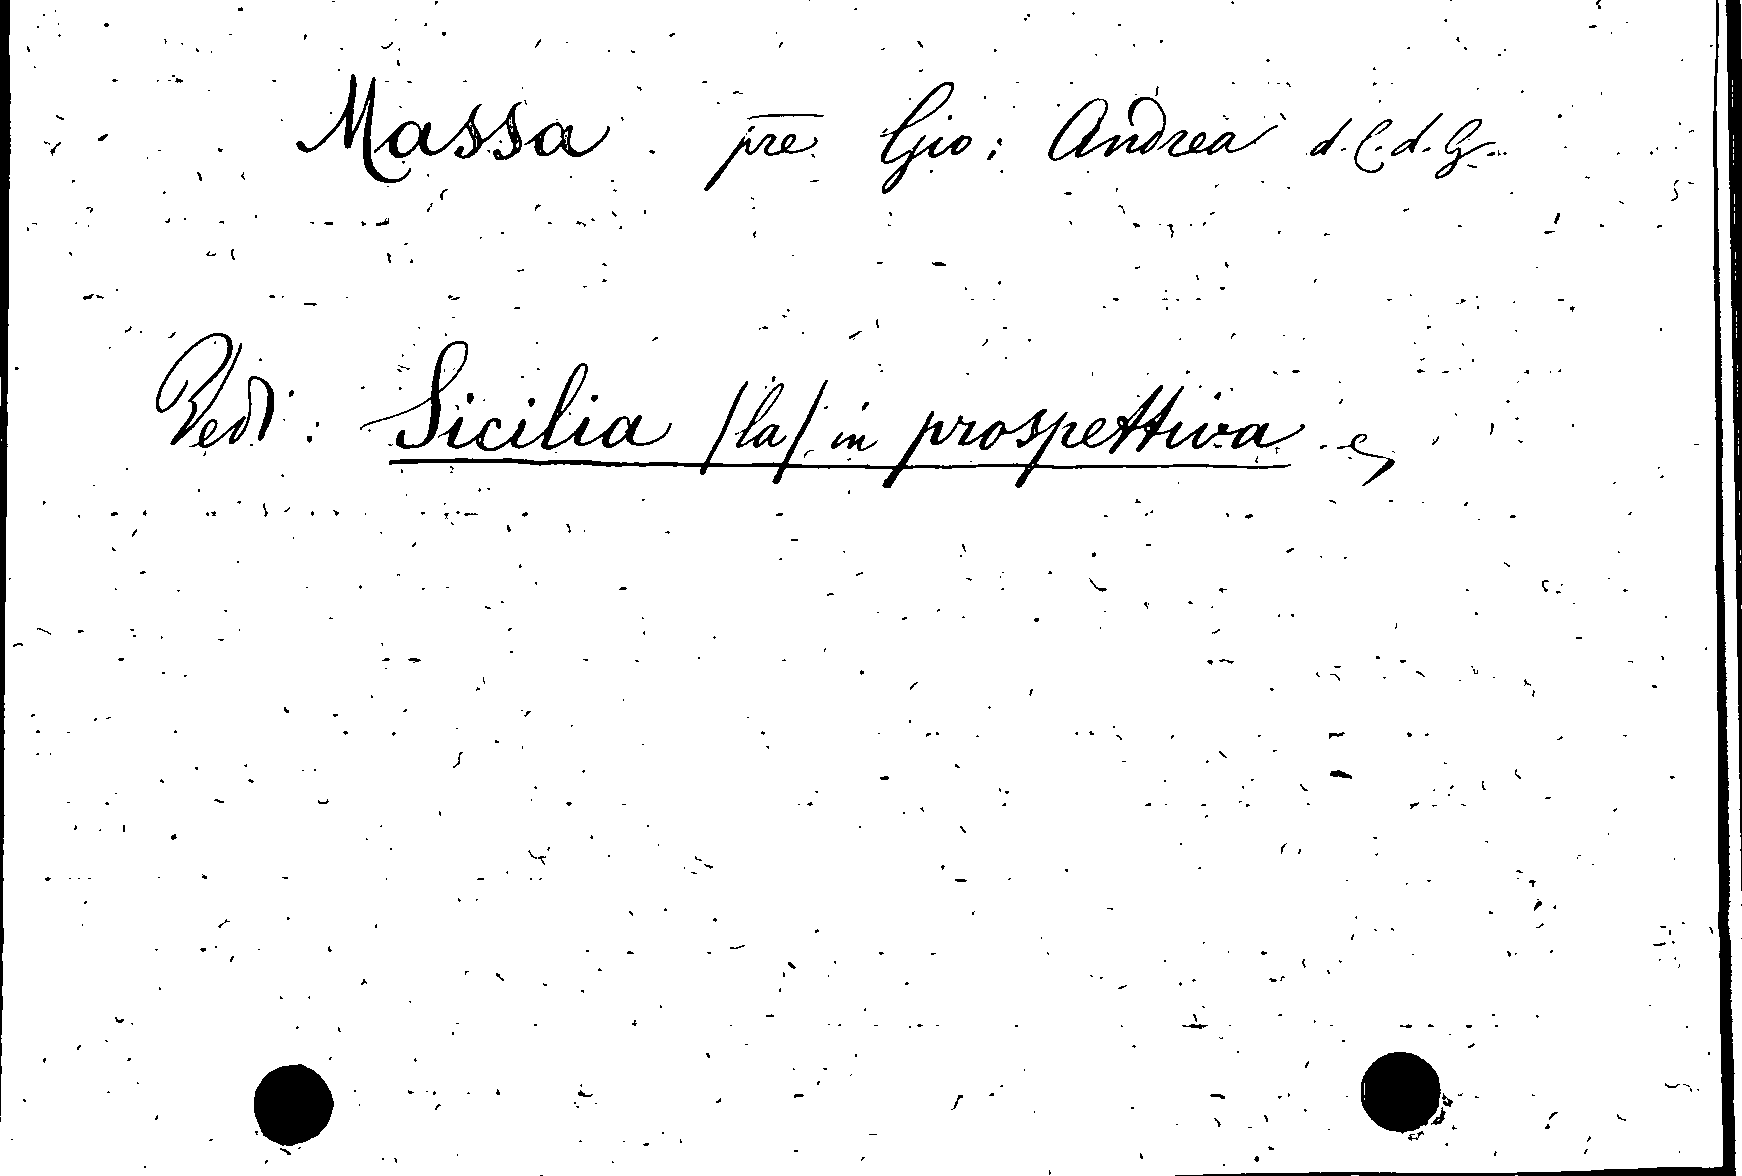 Massa p̅r̅e̅ Gio: Andrea d. C. d. G.
Vedi: Sicilia /la/ in prospettiva e,